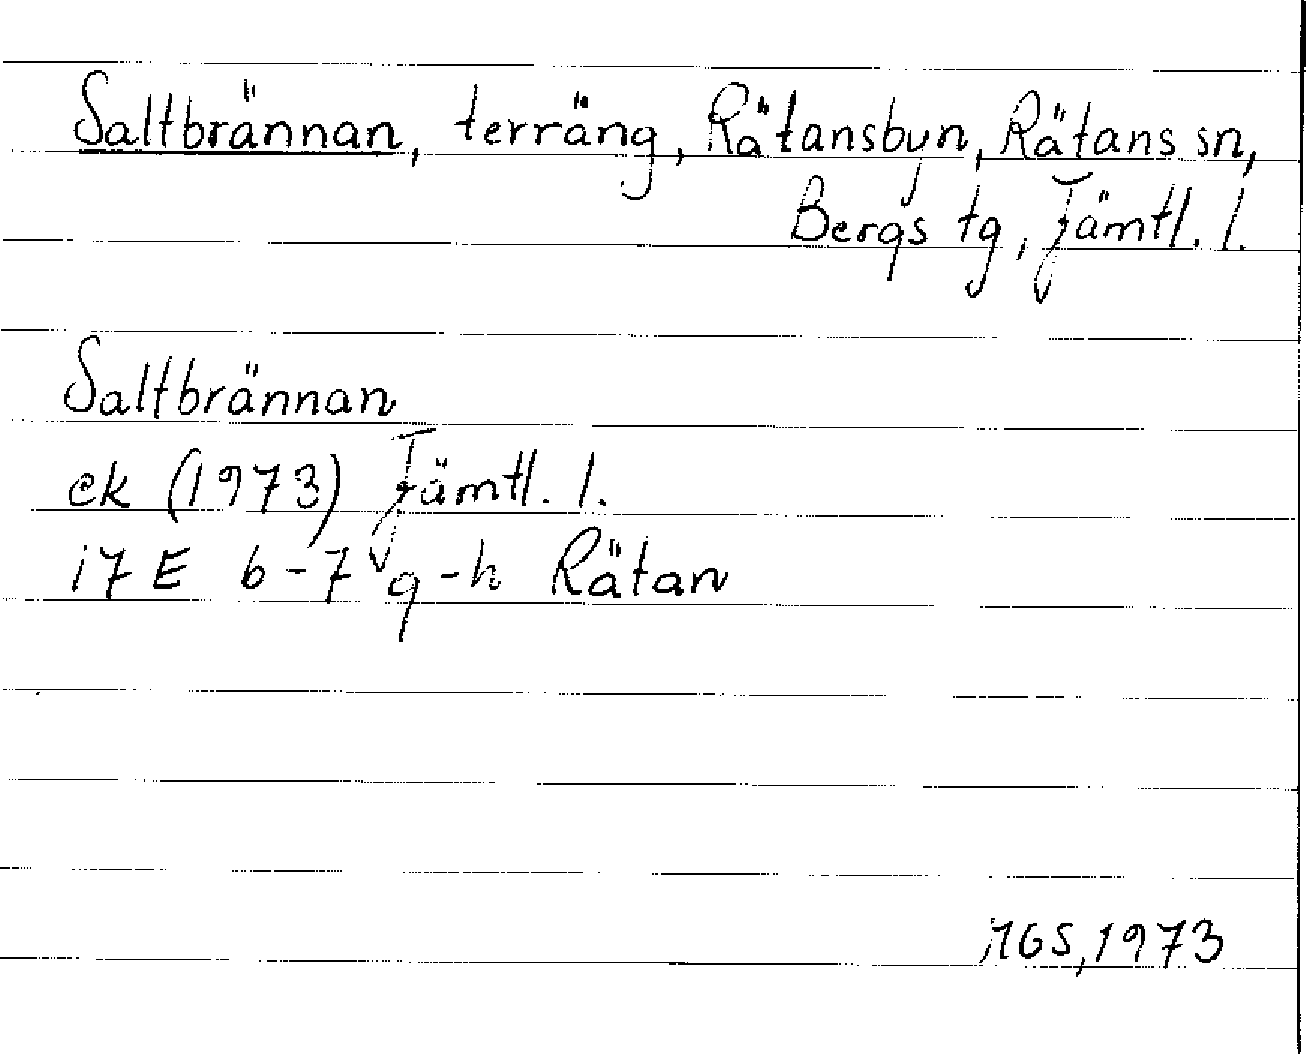 Saltbrännan, terräng, Rätansbyn, Rätans sn,
Bergs tg, Jämtl. l.
Saltbrännan
ek (1973) Jämtl. l.
17 E 6-7 g-h Rätan
MGS, 1973